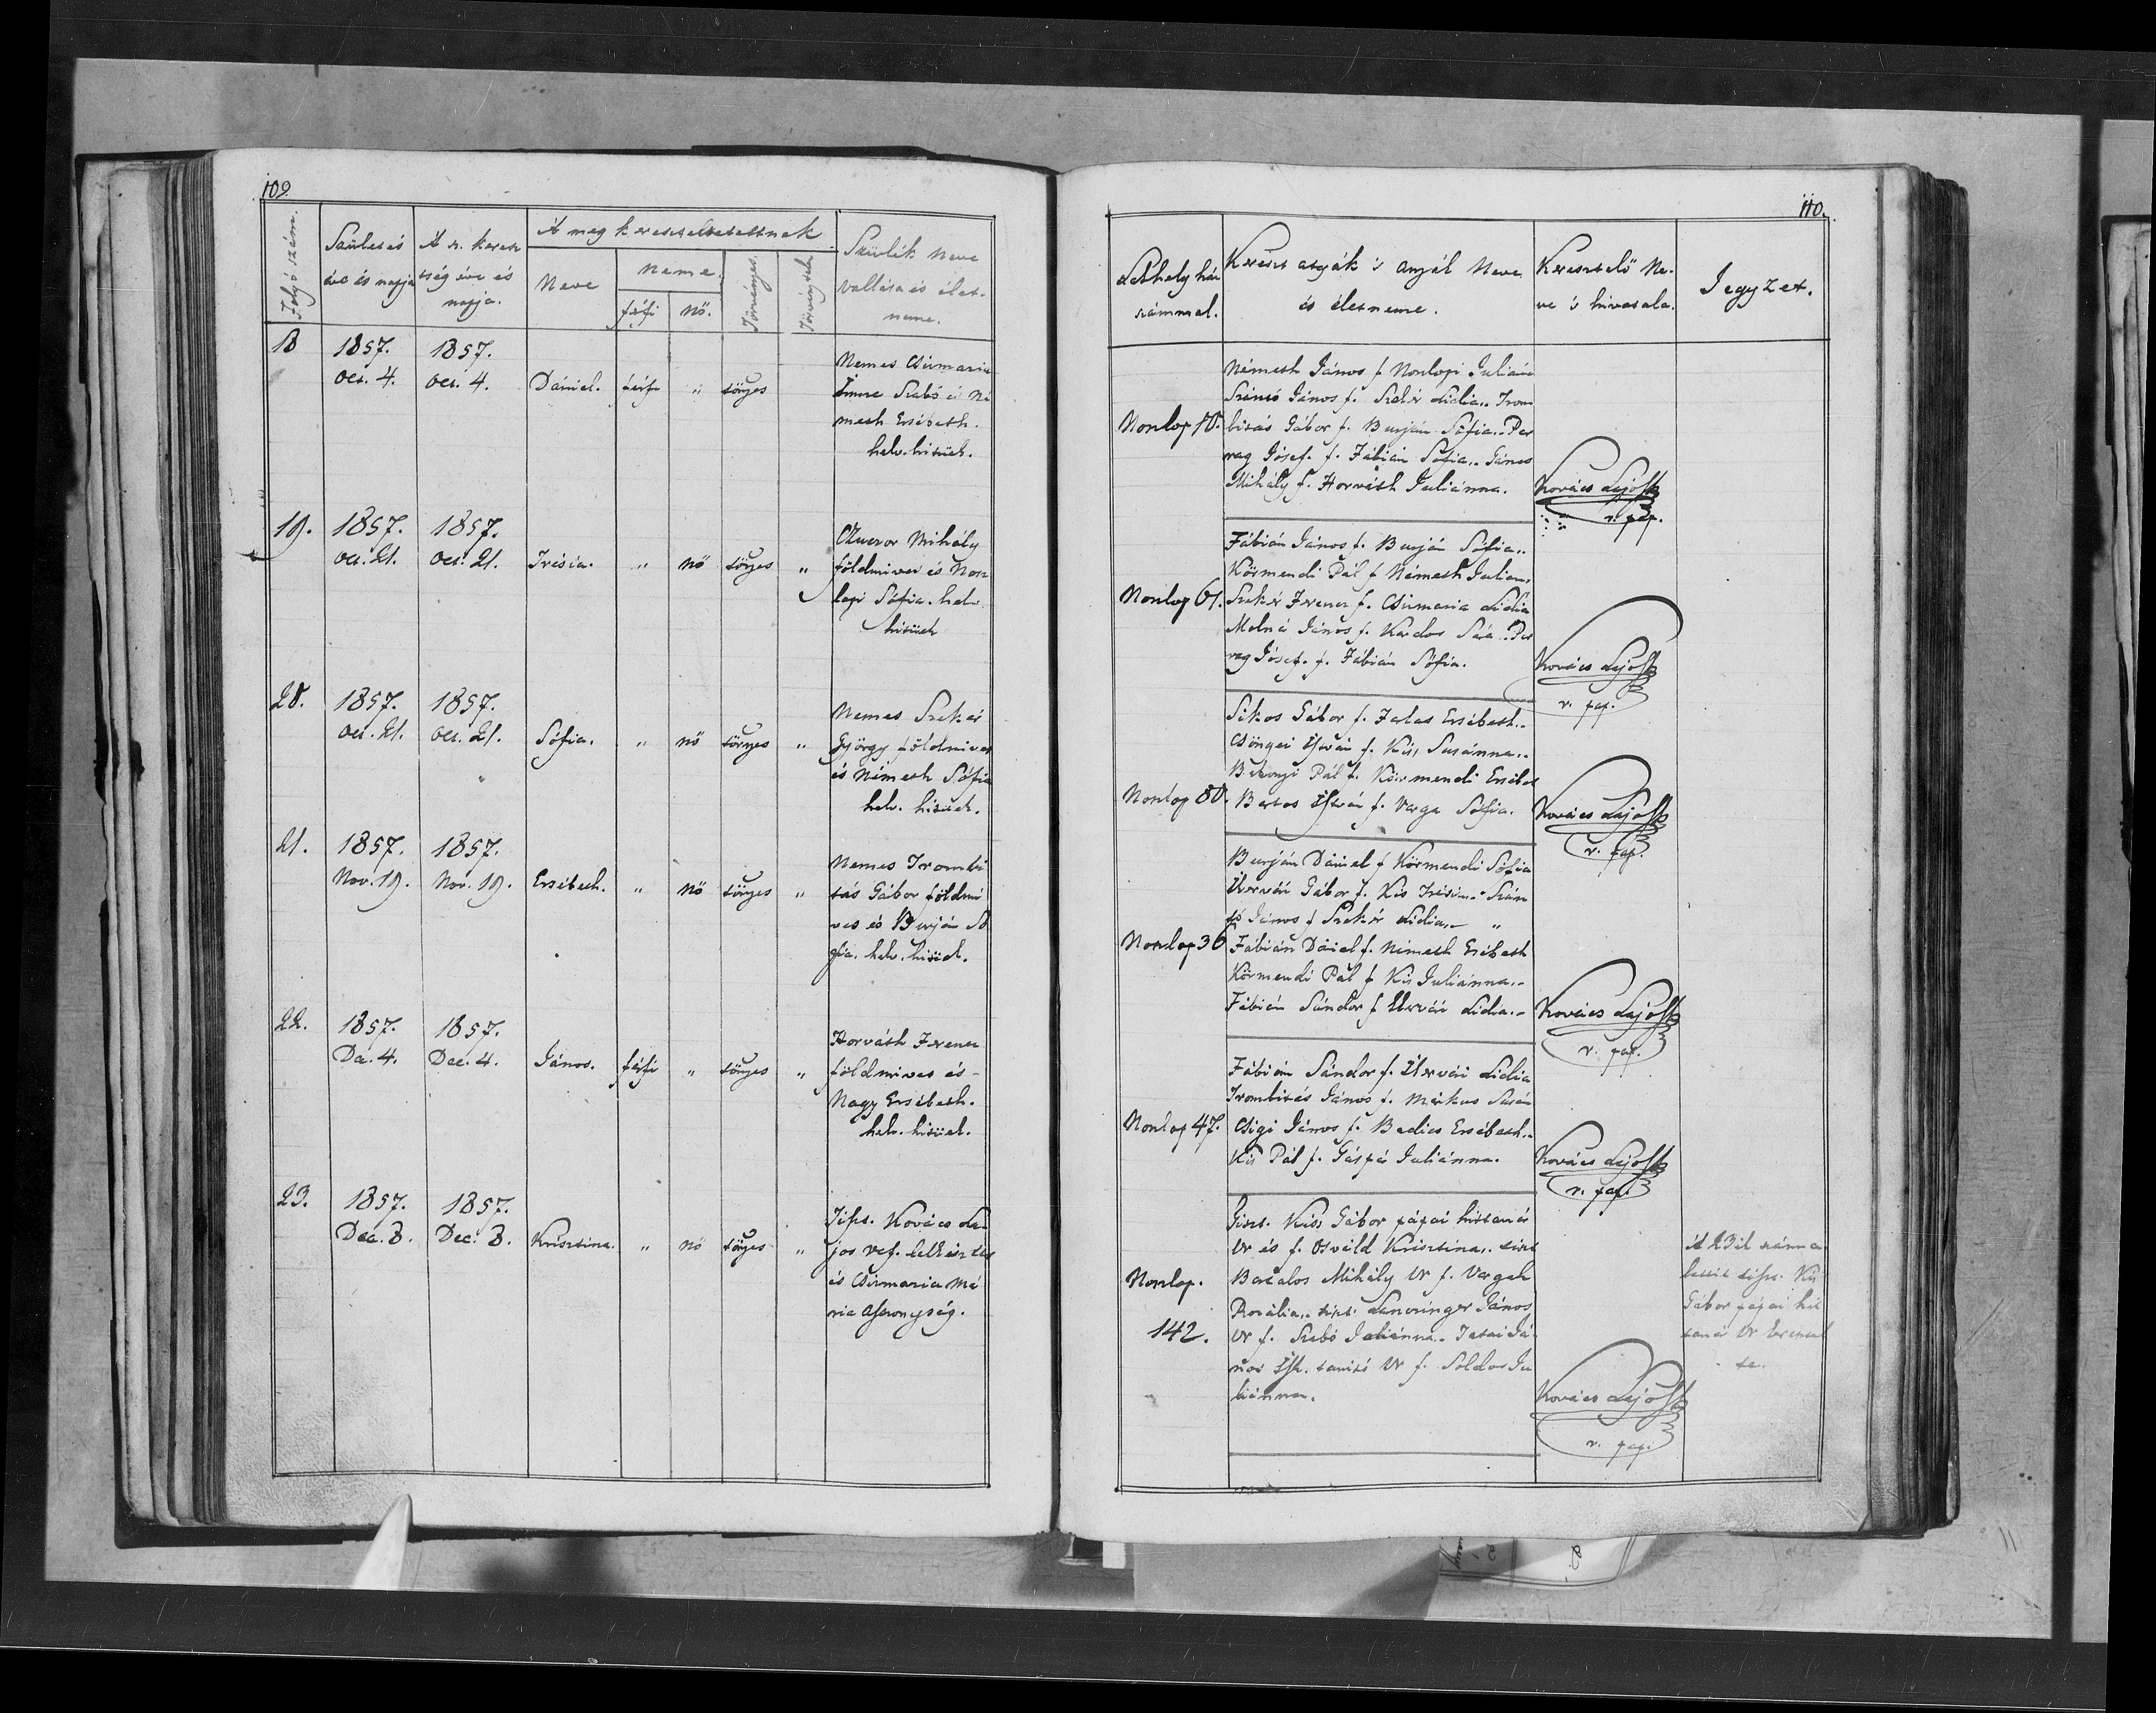 109.
Folyó szám.
Születés
éve és napja
A sz. keresz
tség éve és
napja.
A meg kereszteltetettnek
Neve
neme.
férfi
nő.
Törvényes.
Törvénytelen
Szülék neve
vallása és élet-
neme.
18
1857.
Oct. 4.
1857.
Oct. 4.
Dániel.
férfi
"
törvyes
Nemes Csirmazia
Imre Szabó és Né
meth Ersébeth.
helv. hitüek.
19.
1857.
Oct. 21.
1857.
Oct. 21.
Trésia.
"
nő
törvyes
"
Mihály
földmives és Non
lopi Sófia. helv.
hitüek
20.
1857.
Oct. 21.
1857.
Oct. 21.
Sófia.
"
nő
törvyes
"
Nemes Szekér
György földmives
és Németh Sófia
helv. hitüek.
21.
1857.
Nov. 19.
1857.
Nov. 19.
Ersébeth.
"
nő
törvyes
"
Nemes Trombi
tás Gábor földmi
ves és Burján Só
fia. helv. hitüek.
22.
1857.
Dec. 4.
1857.
Dec. 4.
János.
férfi
"
törvyes
"
Horváth Ferencz
földmives és
Nagy Ersébeth.
helv. hitüek.
23.
1857.
Dec. 8.
1857.
Dec. 8.
Krisztina.
"
nő
törvyes
"
Kovács La-
jos ref. lelkész
és Csirmazia Má
ria Aszonyság.
110.
Lakhely ház
számmal.
Kereszt atyák 's anyák Neve
és életneme.
Keresztelő Ne-
ve 's hivatala.
Jegyzet.
Nonlop
Németh János f. Nonlopi Juliána
Szántó János f. Szekér Lidia.. Trom
bitás Gábor f. Burján Sófia.. Per
rag Jósef. f. Fábián Sófia..
Mihály f. Horváth Juliánna.
Kovács Lajos
r. pap.
Nonlop 61.
Fábián János f. Burján Sófia..
Körmendi Pál f. Németh Julian.
Szekér Ferencz f. Csirmazia Lidia
Molnár János f. Kardos Sára.. Per
rag Jósef. f. Fábián Sófia.
Kovács Lajos
r. pap.
Nonlop 80.
Sikos Gábor f. Ersébeth..
Csöngei István f. Kiss Susánna..
Pál f. Körmendi Ersébet
Bartos István f. Varga Sófia.
Kovács Lajos
r. pap.
Nonlop 36
Burján Dániel f. Körmendi Sófia
Gábor f. Kis Trésia.. Szán
tó János f. Szekér Lidia.. "
Fábián Dániel f. Németh Ersébeth
Körmendi Pál f. Kis Juliánna..
Fábián Sándor f. Lidia..
Kovács Lajos
r. pap.
Nonlop 47.
Fábián Sándor f. Lidia
Trombitás János f. Márkus Susán
Csigi János f. Bedics Ersébeth..
Kis Pál f. Gáspár Juliánna.
Kovács Lajos
r. pap.
Nonlop.
142.
Tiszt. Kiss Gábor pápai hittanár
Ur és f. Osvald Krisztina.. tiszt
Mihály Ur f. Vargah
Rozália.. tiszt. János
Ur f. Szabó Juliánna.. Já-
nos Isk. tanitó Ur f. Soldos Ju
liánna.
Kovács Lajos
r. pap.
A 23ik szám a-
lattit tisz. Kis
Gábor pápai hit
tanár Ur keresztel
te.